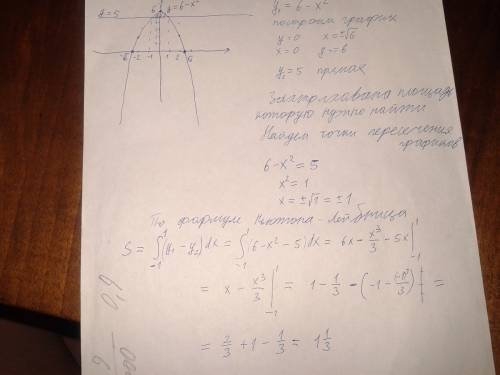 y=5
6
y=6-x²
-√6 -2 -1 1 2 √6
y₁ = 6-x²
построим график
y=0 x=±√6
x=0 y=6
y₂=5 прямая
Заштрихована площадь
которую нужно найти
Найдем точки пересечения
графиков
6-x²=5
x²=1
x=±√1=±1
По формуле Ньютона-Лейбница
S = ∫₋₁¹(y₁-y₂)dx = ∫₋₁¹(6-x²-5)dx = 6x - x³/3 - 5x |₋₁¹
= x - x³/3 |₋₁¹ = 1 - 1/3 - (-1 - (-1)³/3) =
= 2/3 + 1 - 1/3 = 1 1/3